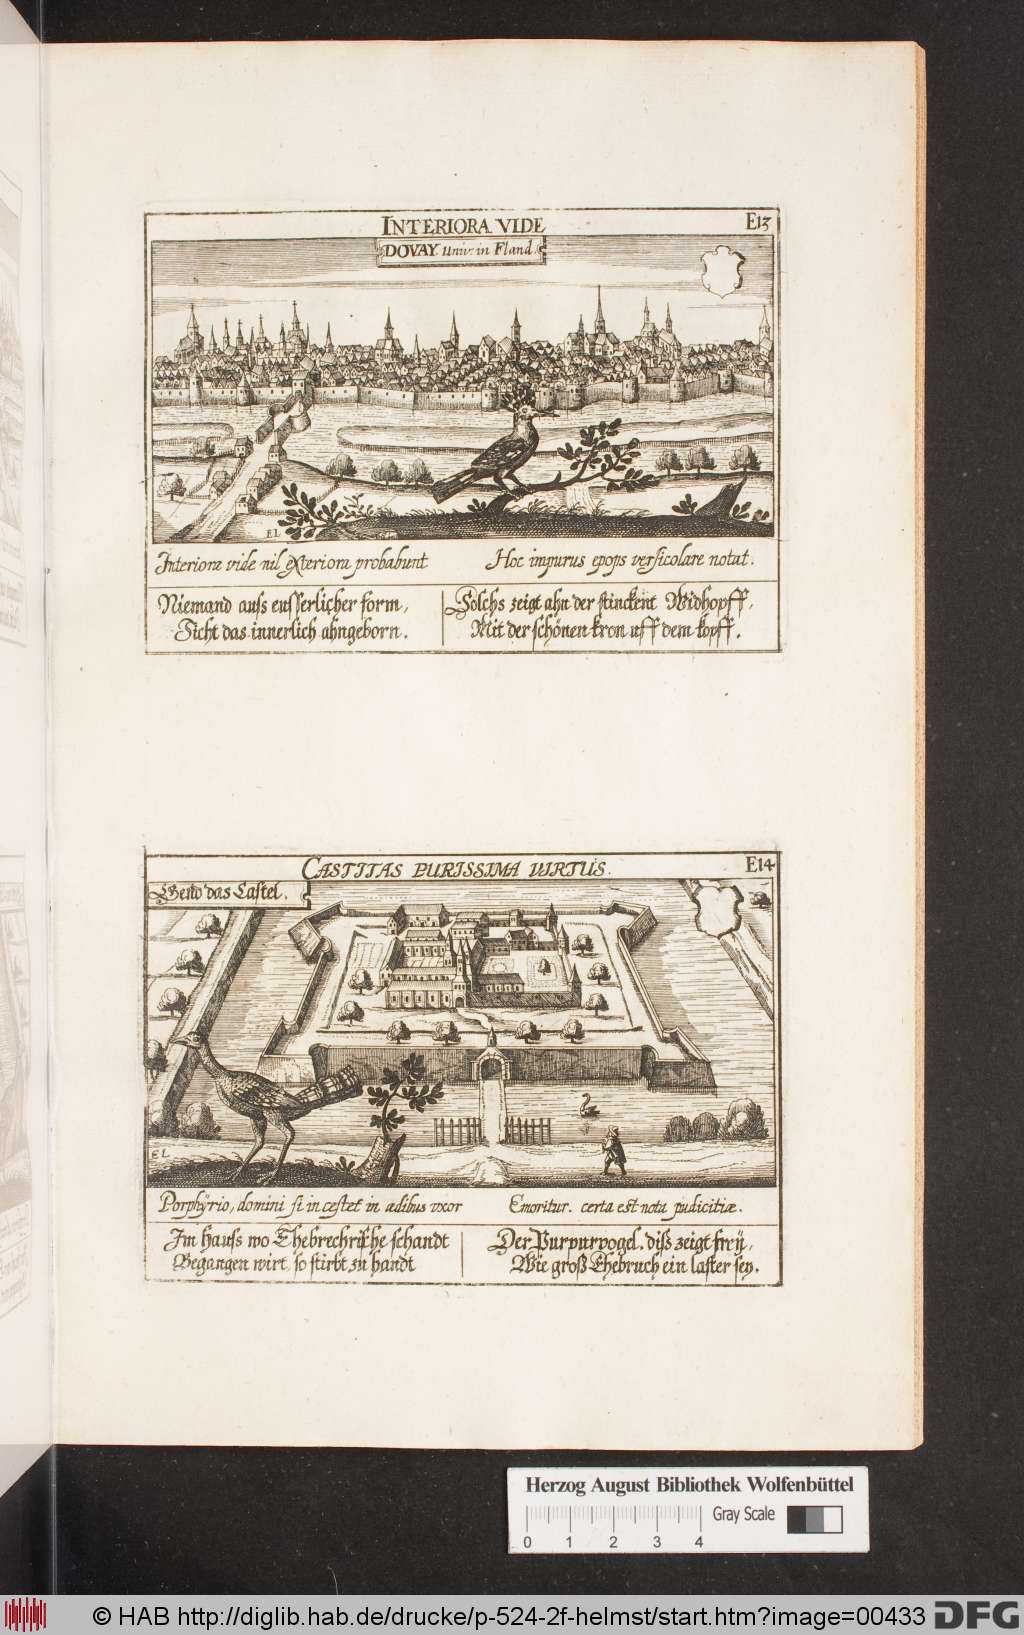 INTERIORA VIDE
E13
DOVAY. Univ: in Fland.
EL
Interiora vide nil exteriora probabunt
Hoc impurus epops versicolare notat.
Niemand auss eusserlicher form,
Sicht das innerlich ahngeborn.
Solchs zeigt ahn der stinckent Widhopff,
Mit der schönen kron uff dem kopff.
CASTITAS PURISSIMA VIRTUS.
E14
Gend das Castel.
EL
Porphÿrio, domini si incestet in ædibus uxor
Emoritur. certa est nota pudicitiæ.
Im hauss wo Ehebrechrische schandt
Begangen wirt, so stirbt zu handt
Der Purpurvogel, diss zeigt freÿ,
Wie groß Ehebruch ein laster sey.
Herzog August Bibliothek Wolfenbüttel
Gray Scale
0 1 2 3 4
© HAB http://diglib.hab.de/drucke/p-524-2f-helmst/start.htm?image=00433
DFG